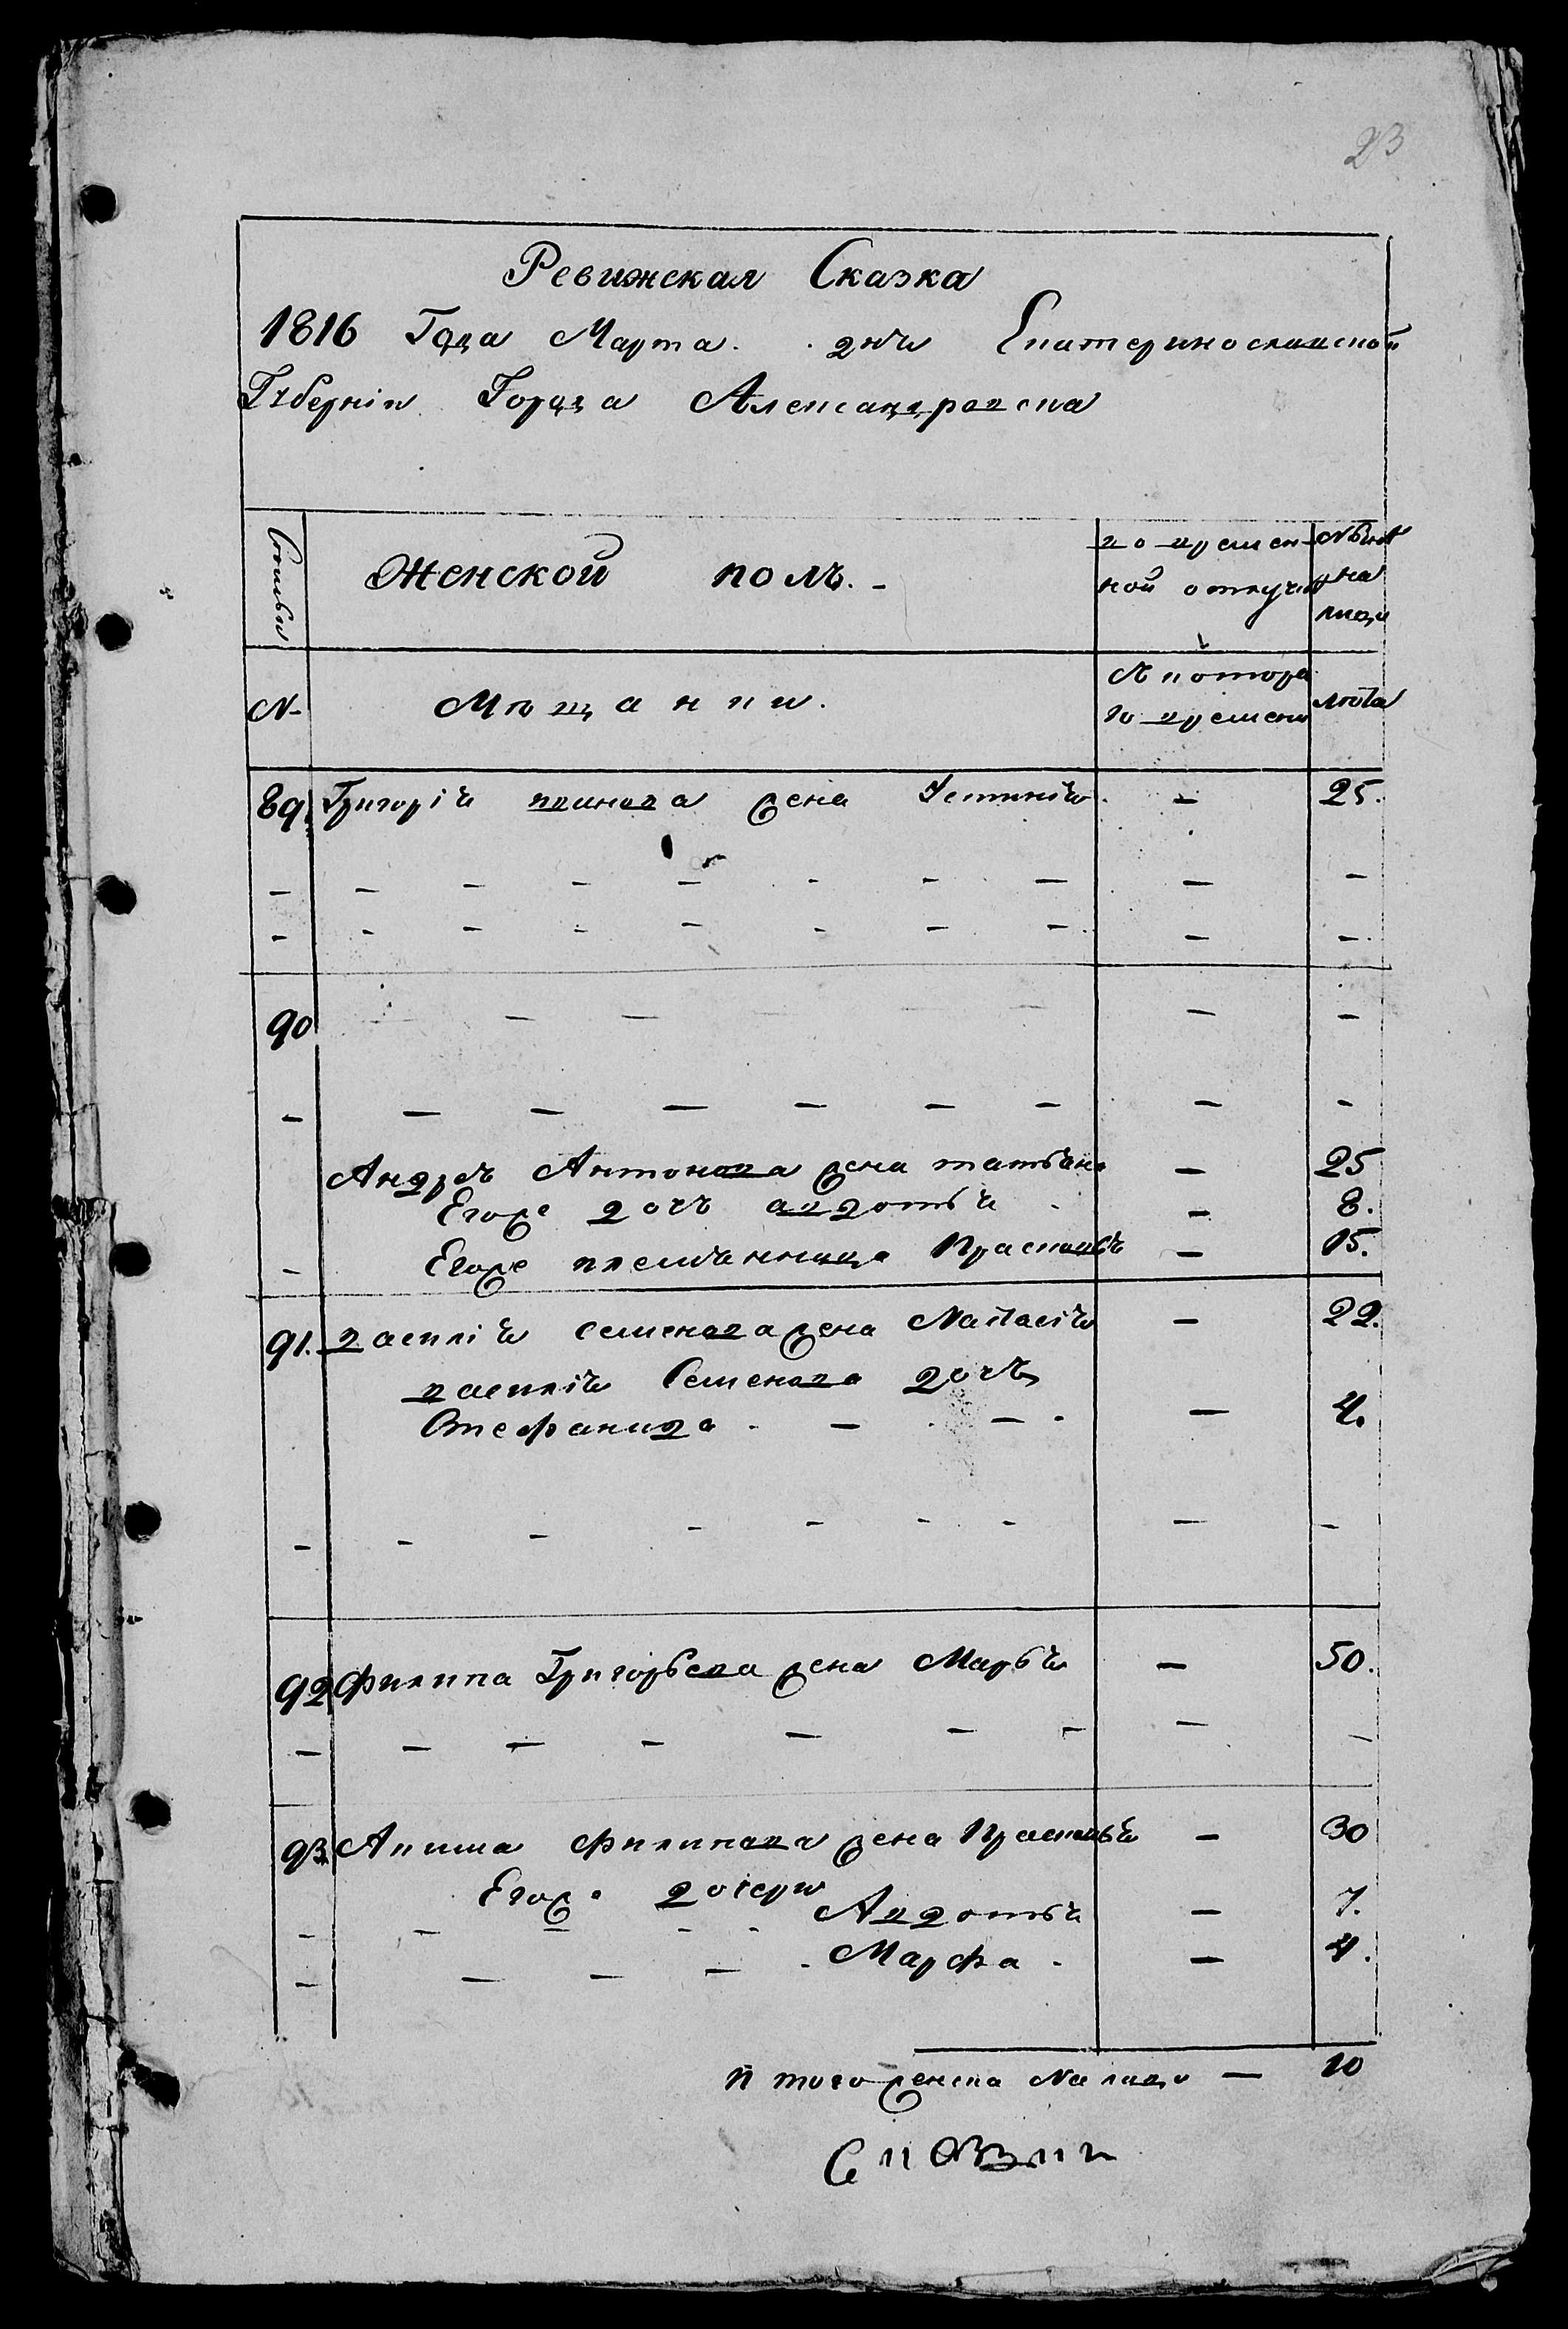 23
Ревижская Сказка
1816 Года Марта дня Екатеринославской
Губерніи Города Александровска
Семьи
Женской полъ.
во времен
ной отлучки
Ныне
на
лицо
N
Мѣщанки.
С котора
го времени
лѣта
89. Григорія жена Устинія. — 25.
90
Андрея Антонова жена татьяна — 25
Егоже дочь авдотья — 8.
Егоже племянница Прасковья — 15.
91. василія семенова жена Настасія — 22.
василія Семенова дочь
Стефанида — 4.
92 Филипа Григорьева жена Марья — 50.
93 Акима Филипова жена Прасковья — 30
Егоже дочери
Авдотья — 7.
Марфа — 4.
Итого женска На лицо — 10